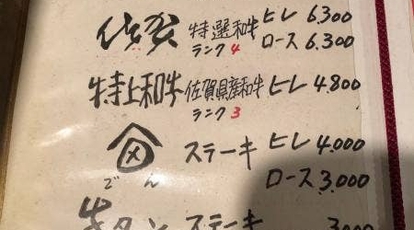 佐賀 特選和牛 ヒレ 6.300
ランク4 ロース 6.300
特上和牛 佐賀県産和牛 ヒレ 4.800
ランク3
ステーキ ヒレ 4.000
ごん ロース 3.000
牛タン ステーキ 3000